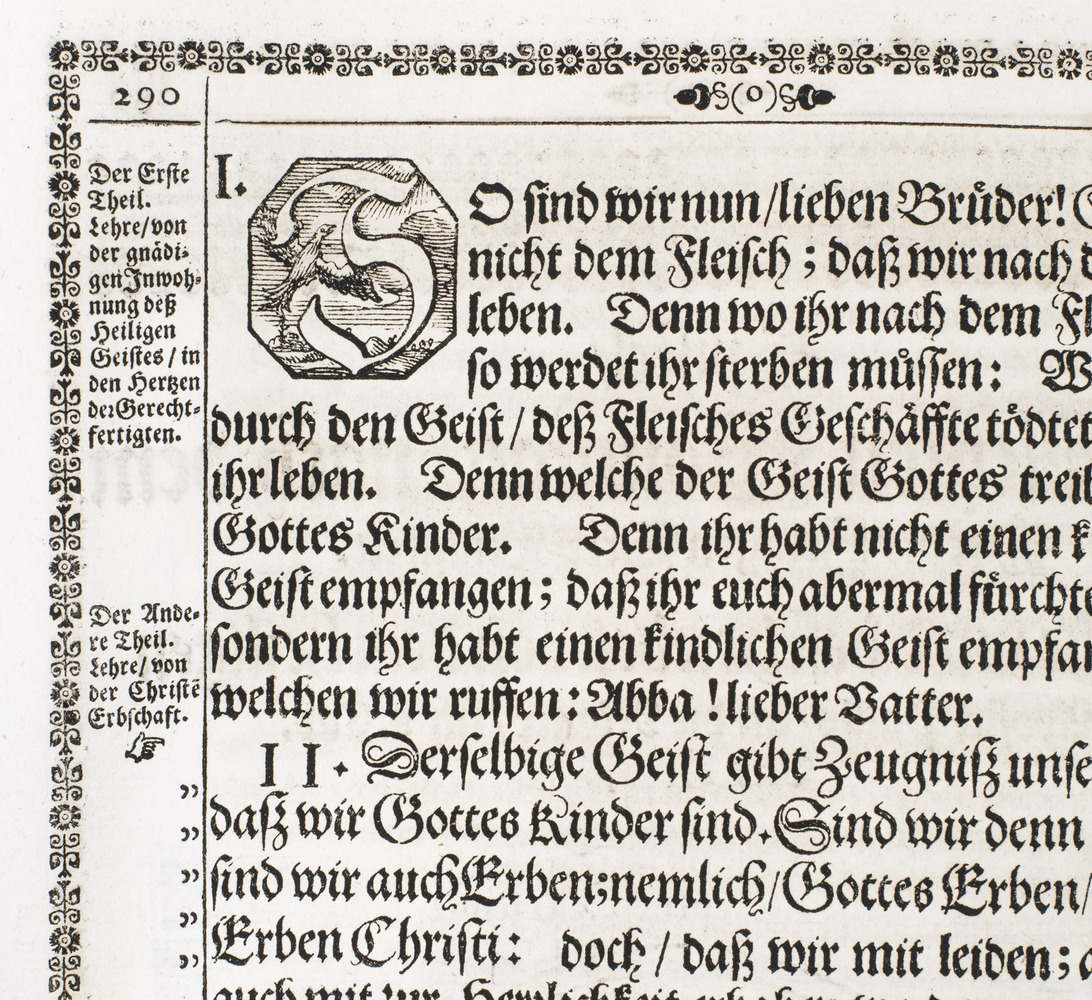 290
§(o)§
Der Erste
Theil.
Lehre/von
der gnädi-
gen Inwoh-
nung deß
Heiligen
Geistes / in
den Hertzen
der Gerecht-
fertigten.
Der Ande-
re Theil.
Lehre/ von
der Christē
Erbschaft.
I.
SO sind wir nun/lieben Brůder!
nicht dem Fleisch ; daß wir nach
leben. Denn wo ihr nach dem
so werdet ihr sterben můssen:
durch den Geist / deß Fleisches Geschäffte tödtet
ihr leben. Denn welche der Geist Gottes treib
Gottes Kinder. Denn ihr habt nicht einen k
Geist empfangen ; daß ihr euch abermal fürchte
sondern ihr habt einen kindlichen Geist empfan
welchen wir ruffen : Abba ! lieber Vatter.
II. Derselbige Geist gibt Zeugniß unse
„ daß wir Gottes Kinder sind. Sind wir denn
„ sind wir auch Erben; nemlich/Gottes Erben/
„ Erben Christi : doch / daß wir mit leiden ;
auch mit zur Herrlichkeit